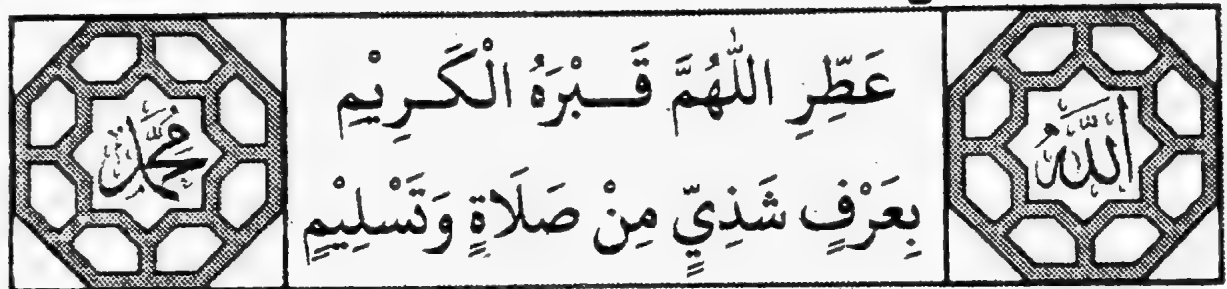 الله
عَطِّرِ اللّٰهُمَّ قَــبْرَهُ الْكَــرِيْمِ
بِعَرْفٍ شَذِيٍّ مِنْ صَلَاةٍ وَتَسْلِيْمٍ
محمد